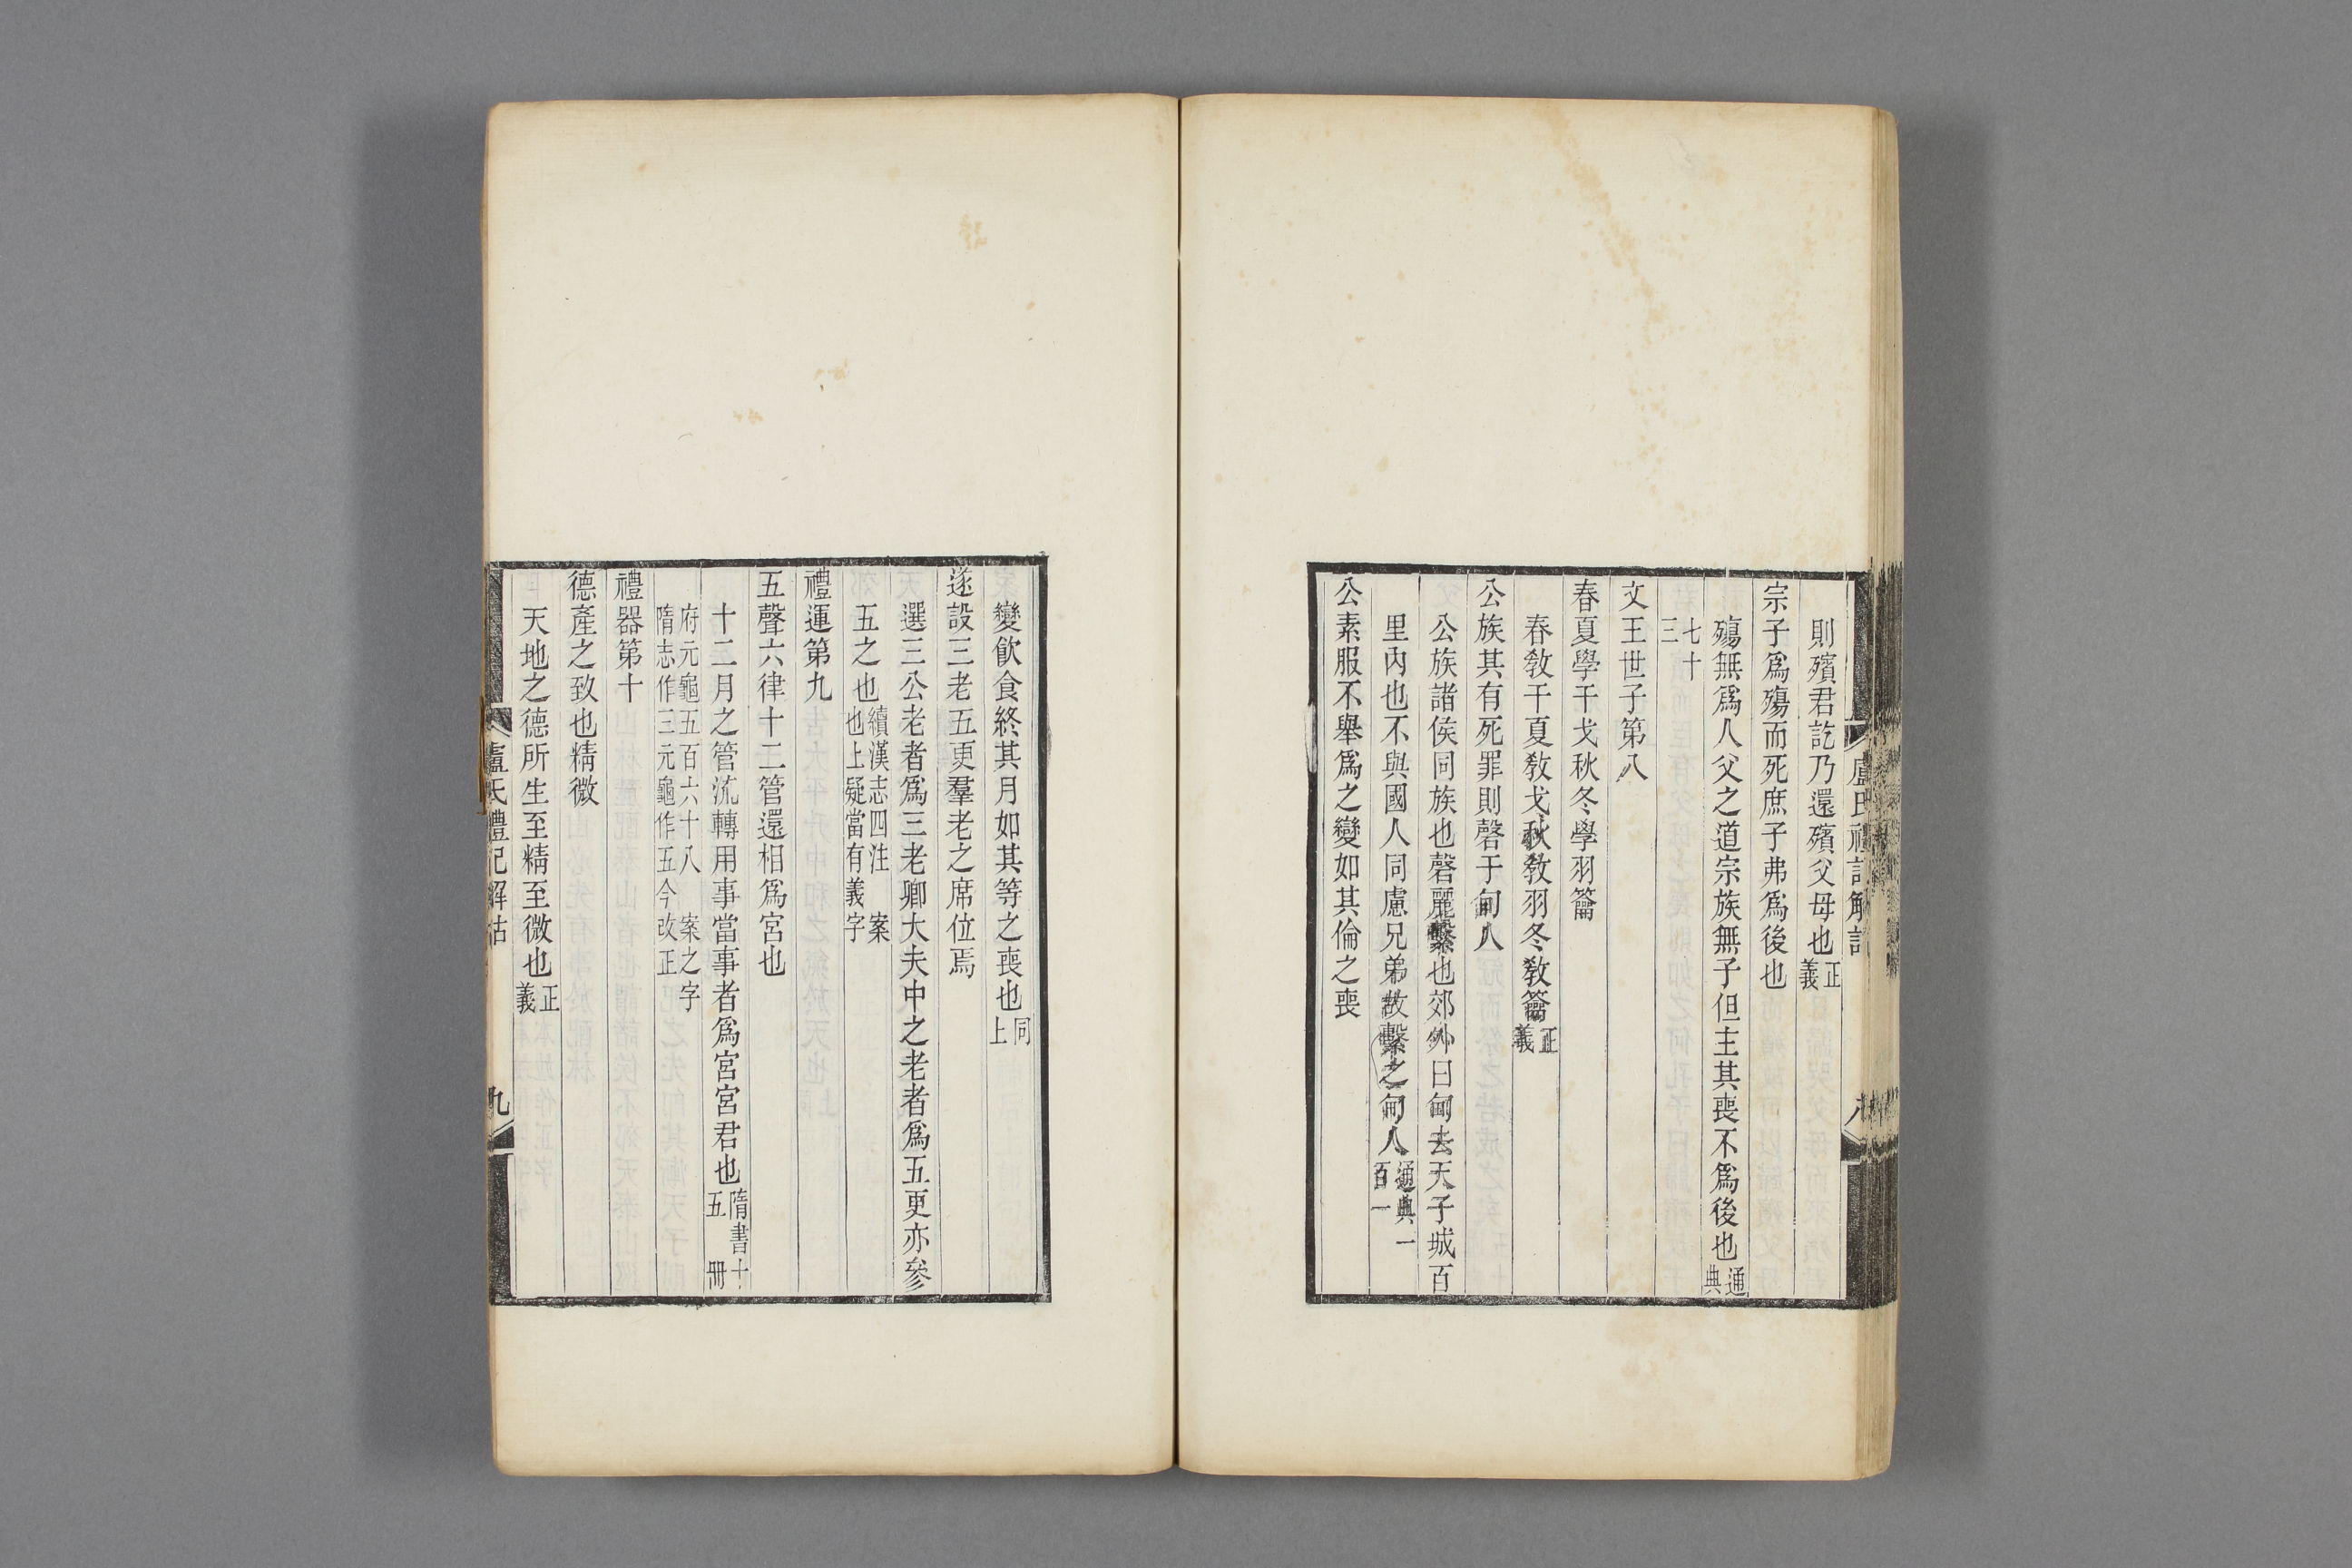 則殯君訖乃還殯父母也正義
宗子爲殤而死庶子弗爲後也
殤無爲人父之道宗族無子但主其喪不爲後也通典
七十三
文王世子第八
春夏學干戈秋冬學羽籥
春敎干夏敎戈秋敎羽冬敎籥正義
公族其有死罪則磬于甸人
公族諸侯同族也磬麗繫也郊外曰甸去天子城百
里內也不與國人同慮兄弟故繫之甸人通典一百一
公素服不舉爲之變如其倫之喪
變飮食終其月如其等之喪也同上
遂設三老五更羣老之席位焉
選三公老者爲三老卿大夫中之老者爲五更亦參
五之也續漢志四注 案也上疑當有義字
禮運第九
五聲六律十二管還相爲宮也
十二月之管流轉用事當事者爲宮宮君也隋書十五 冊
府元龜五百六十八 案之字隋志作三元龜作五今改正
禮器第十
德產之致也精微
天地之德所生至精至微也正義
盧氏禮記解詁
九